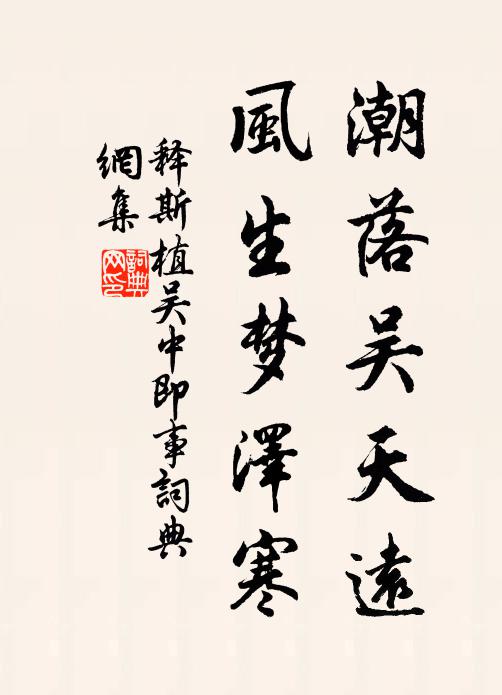 潮落吴天遠
風生梦澤寒
释斯植吴中即事詞典
網集
詞典网印